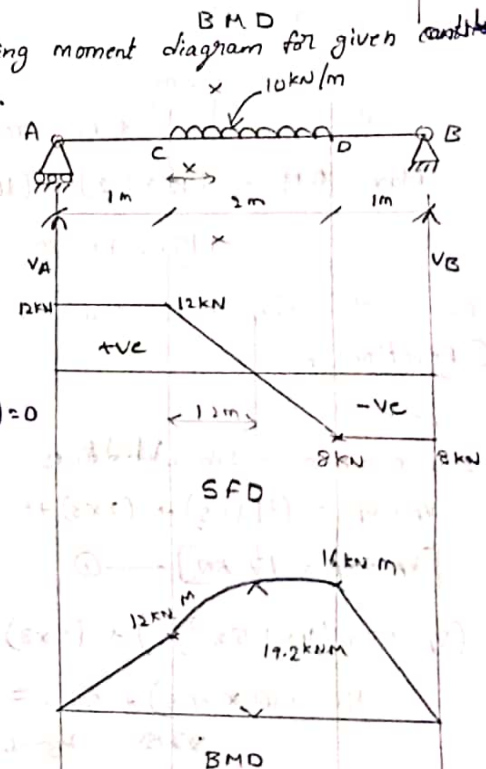 BMD
ing moment diagram for given
x 10kN/m
A B
C D
x
1m 2m 1m
x
VA VB
12kN 12kN
+ve
-ve
)=0
8kN 8kN
SFD
12kNM
19.2kNM
BMD